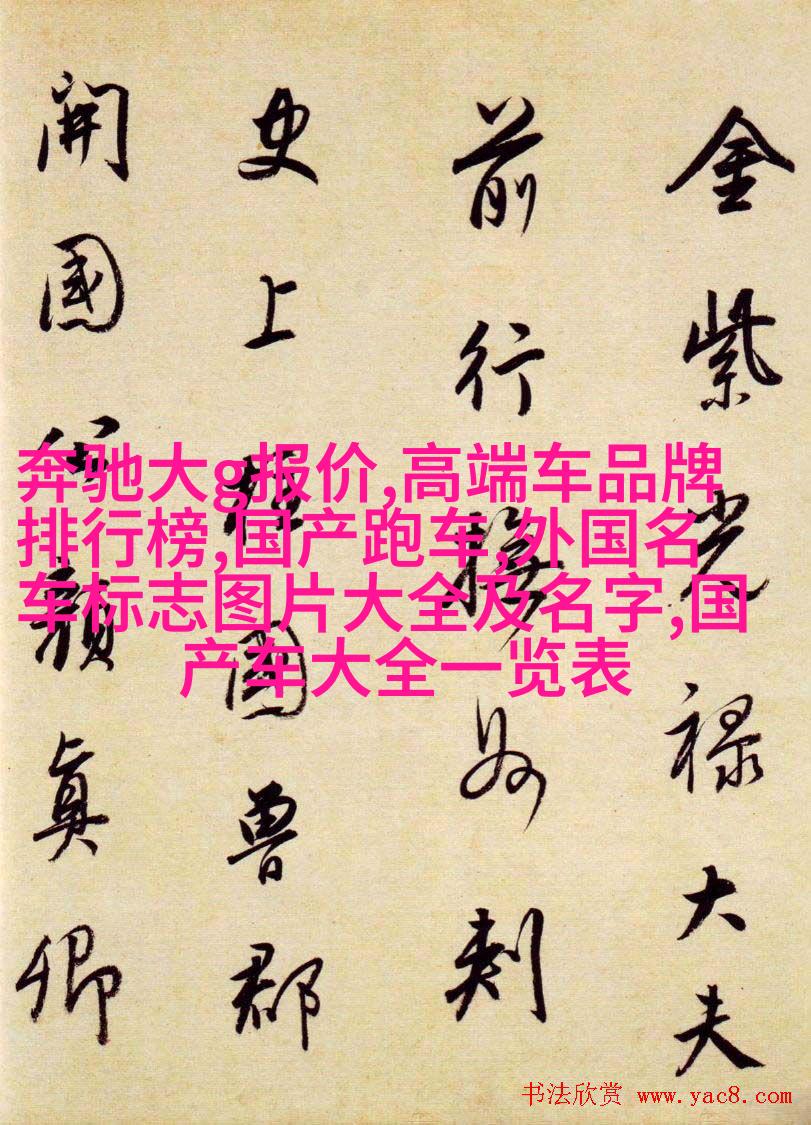 金紫光禄大夫
前行撫州刺
史上柱國魯郡
開國公顏真卿
奔驰大g报价,高端车品牌
排行榜,国产跑车,外国名
车标志图片大全及名字,国
产车大全一览表
书法欣赏 www.yac8.com